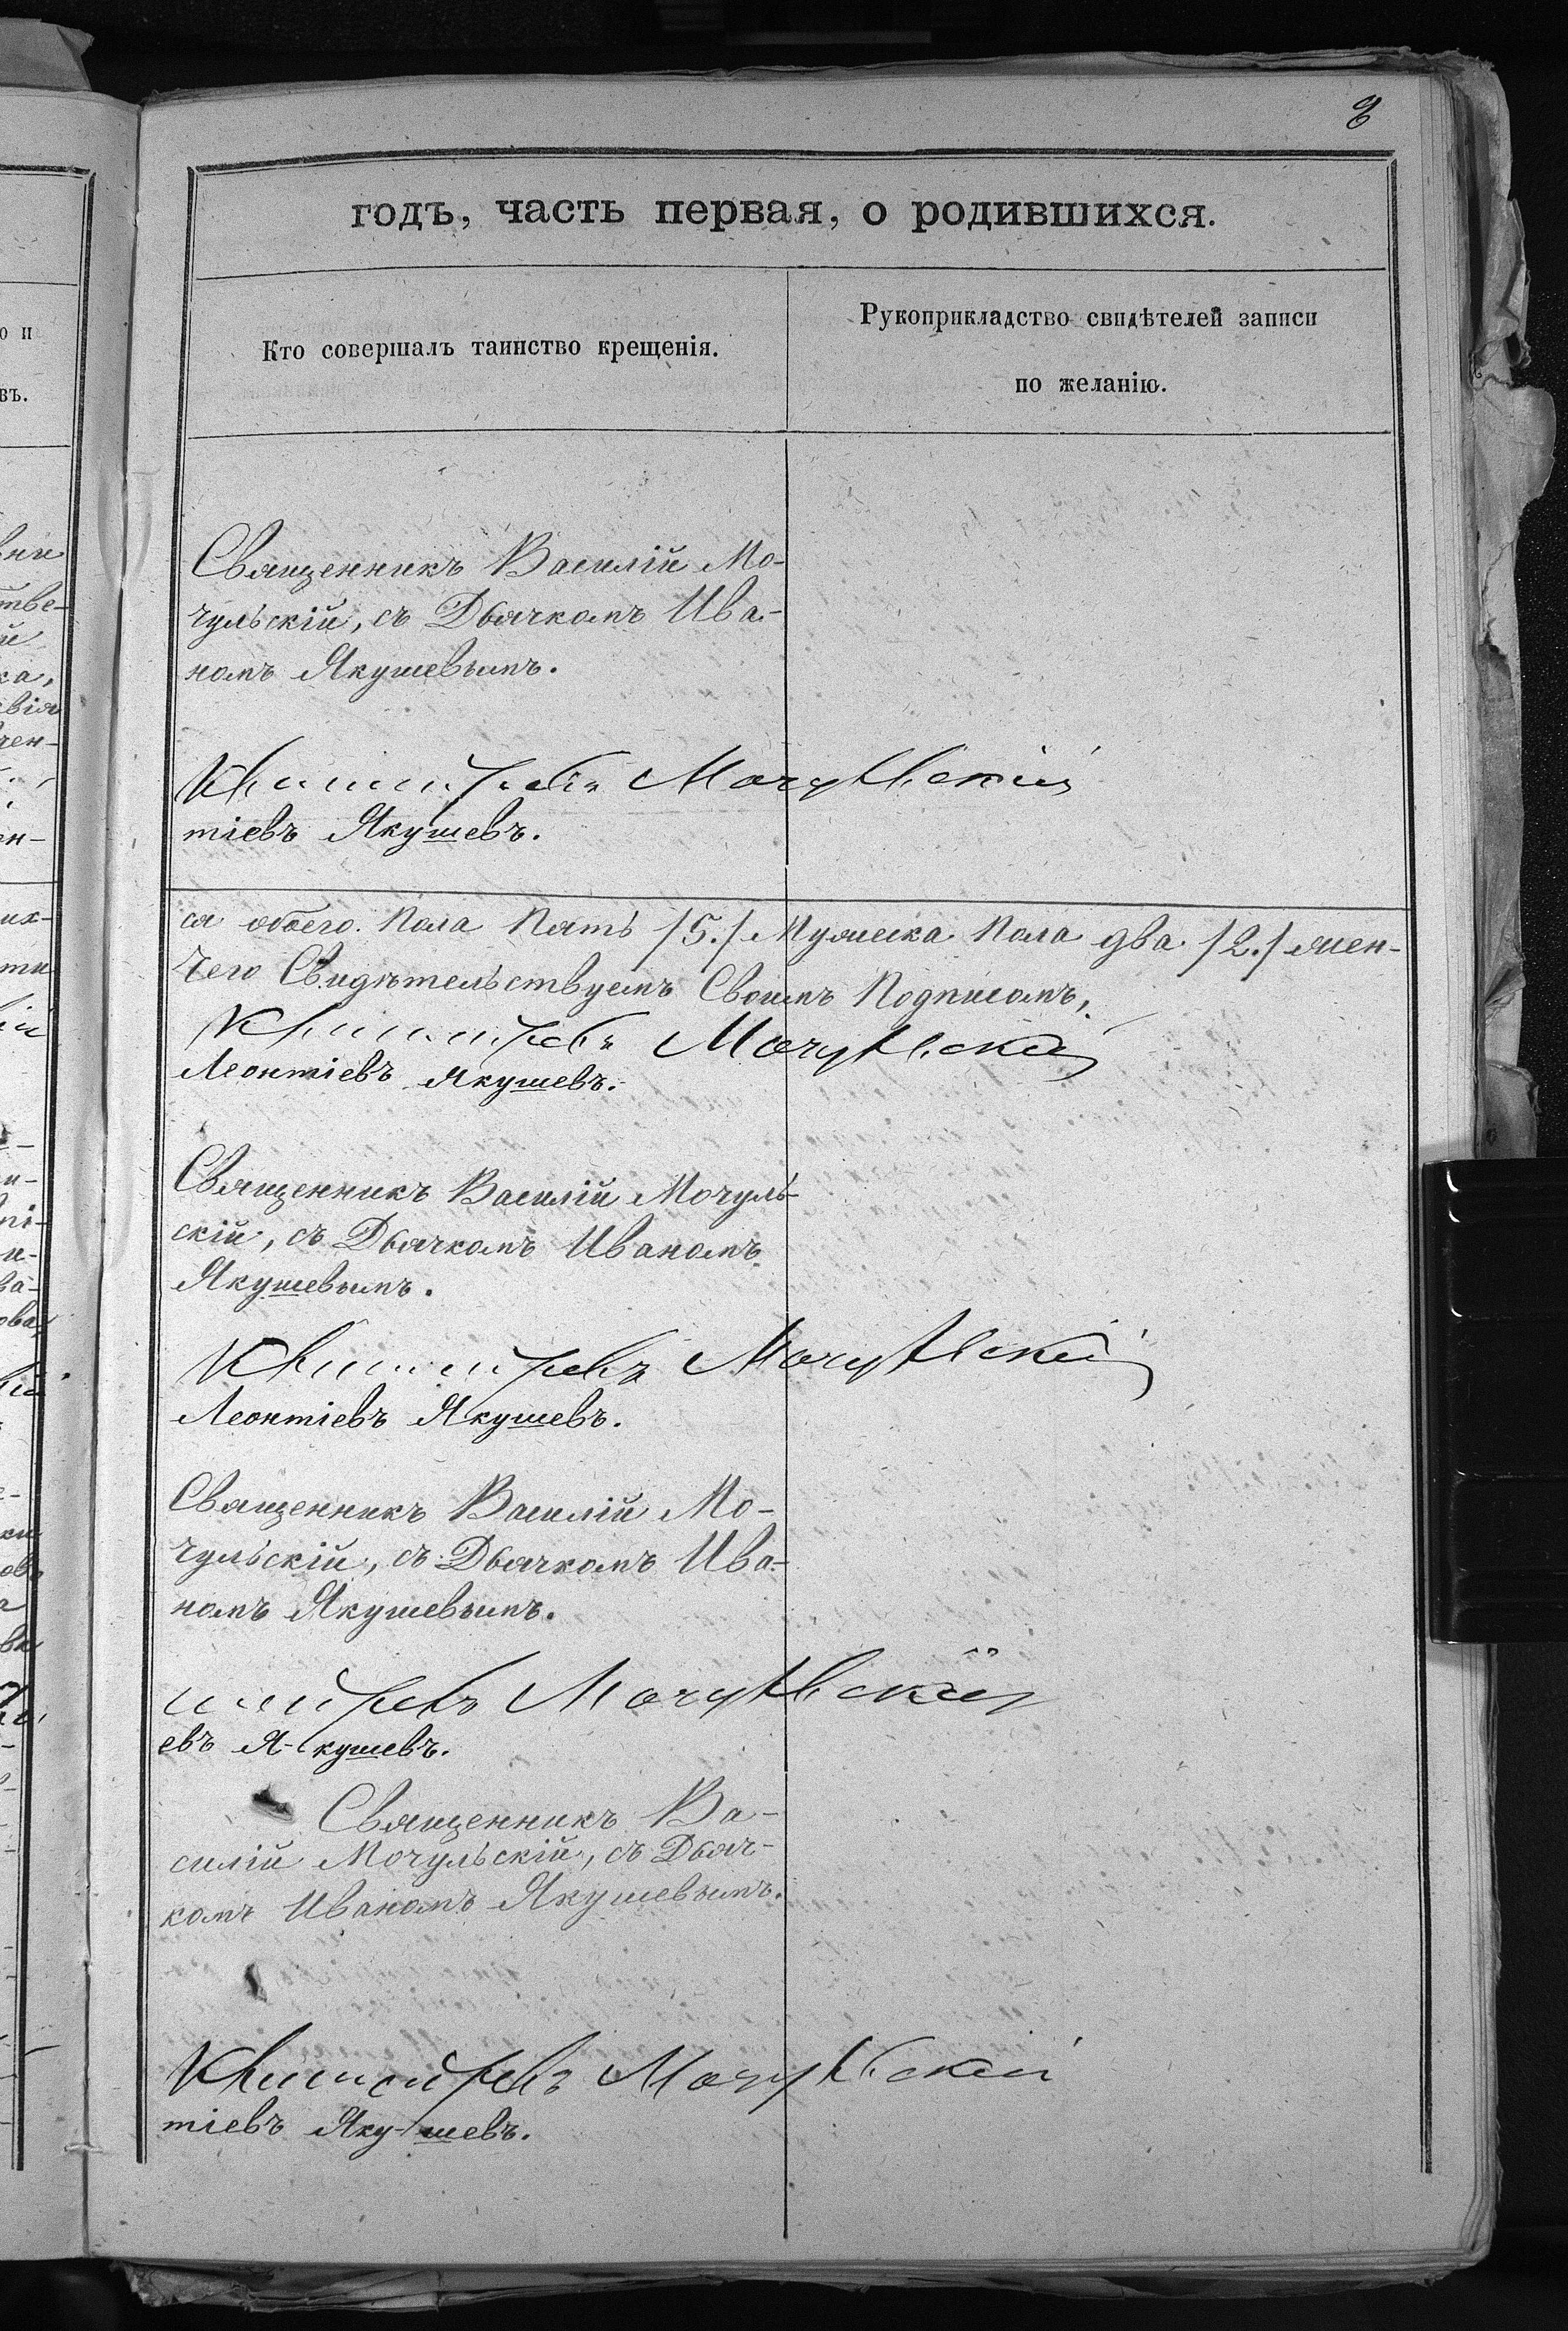 8
годъ, часть первая, о родившихся.
Кто совершалъ таинство крещенія.
Рукоприкладство свидѣтелей записи
по желанію.
Священникъ Василій Мо-
чульскій, съ Дьячкомъ Ива-
номъ Якушевымъ.
Мочульскій
тіевъ Якушевъ.
ся обоего Пола Пять /5./ Мужеска Пола два /2./ жен-
чего Свидѣтельствуемъ Своимъ Подписомъ,
Мочульскій
Леонтіевъ Якушевъ.
Священникъ Василій Мочуль-
скій, съ Дьячкомъ Иваномъ
Якушевымъ.
Мочульскій
Леонтіевъ Якушевъ.
Священникъ Василій Мо-
чульскій, съ Дьячкомъ Ива-
номъ Якушевымъ.
Мочульскій
евъ Я-кушевъ.
Священникъ Ва-
силій Мочульскій, съ Дьяч-
комъ Иваномъ Якушевымъ.
Мочульскій
тіевъ Яку-шевъ.